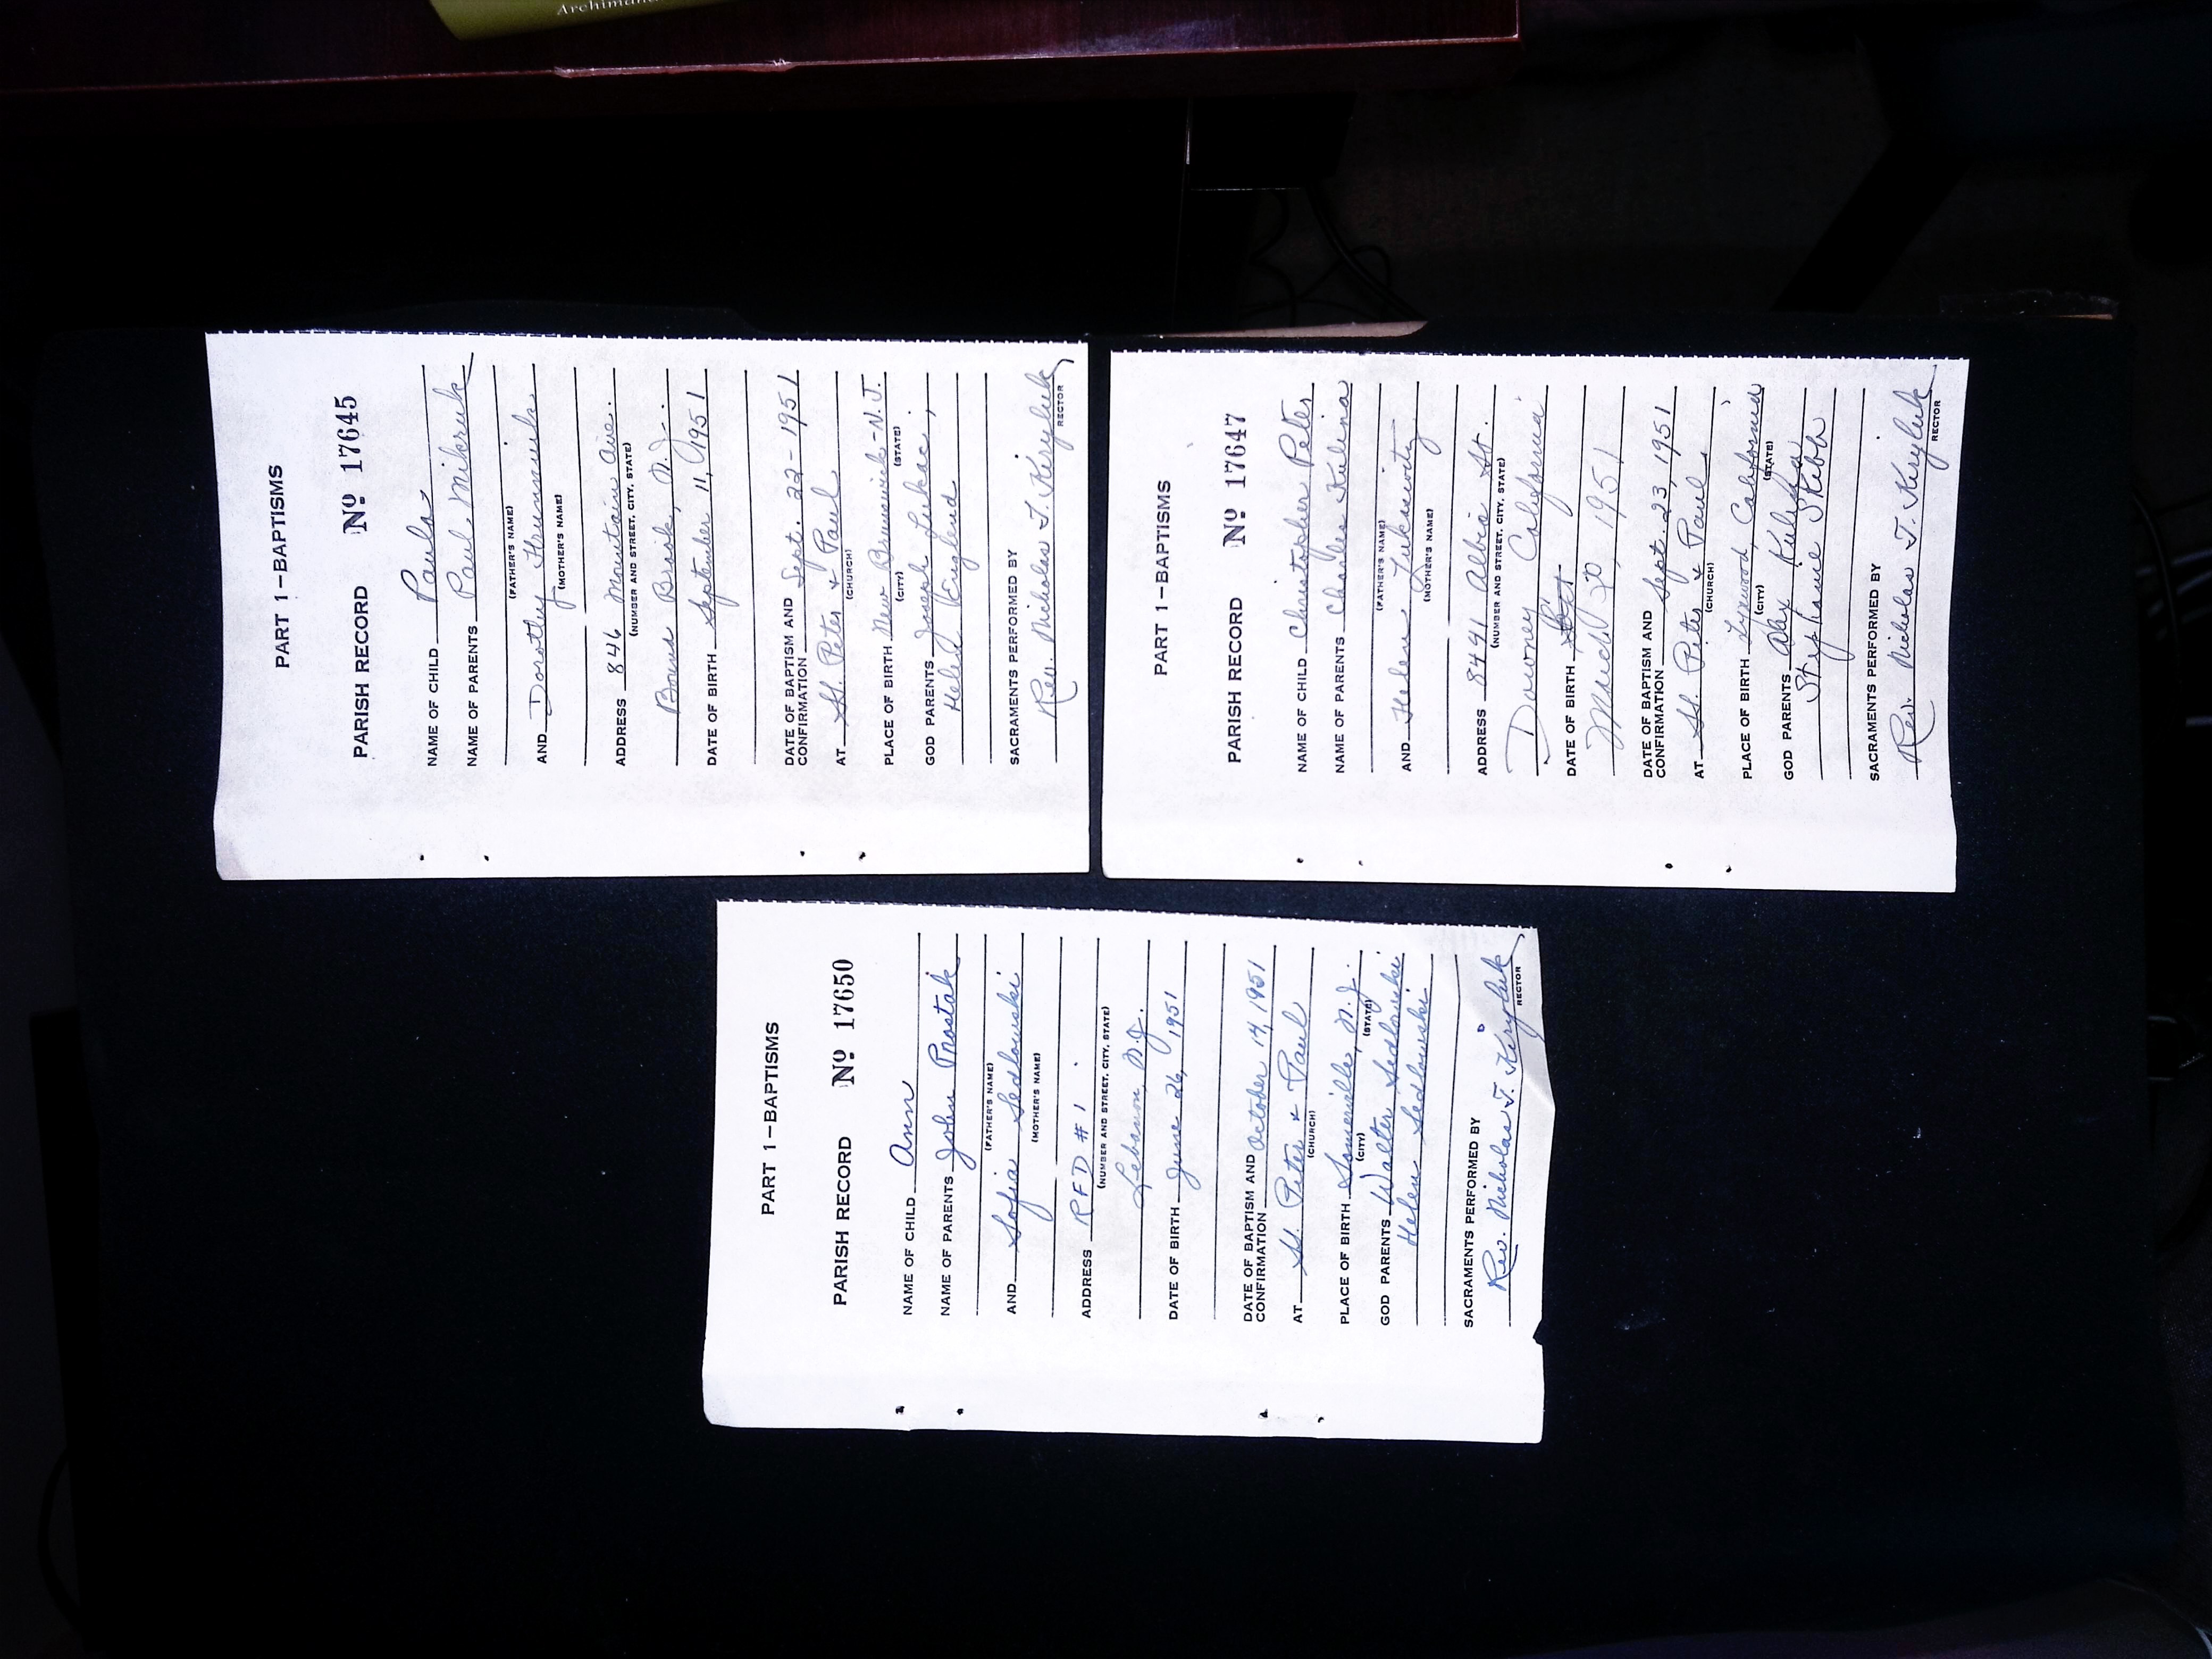 PART 1—BAPTISMS
PARISH RECORD Nº 17650
NAME OF CHILD Ann
NAME OF PARENTS John Prostak
(FATHER'S NAME)
AND Sofia Sedlowski
(MOTHER'S NAME)
ADDRESS RFD #1
(NUMBER AND STREET, CITY, STATE)
Lebanon, N.J.
DATE OF BIRTH June 26, 1951
DATE OF BAPTISM AND
CONFIRMATION October 14, 1951
AT St. Peter & Paul
(CHURCH)
PLACE OF BIRTH Somerville, N.J.
(CITY) (STATE)
GOD PARENTS Walter Sedlowski
Helen Sedlowski
SACRAMENTS PERFORMED BY
Rev. Nicholas T. Kiryluk
RECTOR
PART 1—BAPTISMS
PARISH RECORD Nº 17645
NAME OF CHILD Paula
NAME OF PARENTS Paul Mikruk
(FATHER'S NAME)
AND Dorothy
(MOTHER'S NAME)
ADDRESS 846 Mountain Ave.
(NUMBER AND STREET, CITY, STATE)
Bound Brook, N.J.
DATE OF BIRTH September 11, 1951
DATE OF BAPTISM AND
CONFIRMATION Sept. 22-1951
AT St. Peter & Paul
(CHURCH)
PLACE OF BIRTH New Brunswick-N.J.
(CITY) (STATE)
GOD PARENTS Joseph Lukac,
Helen Englend
SACRAMENTS PERFORMED BY
Rev. Nicholas T. Kiryluk
RECTOR
PART 1—BAPTISMS
PARISH RECORD Nº 17647
NAME OF CHILD Christopher Peter
NAME OF PARENTS Charles Kulina
(FATHER'S NAME)
AND Helen Lukasewitz
(MOTHER'S NAME)
ADDRESS 8441 Albia St.
(NUMBER AND STREET, CITY, STATE)
Downey California
DATE OF BIRTH Sept
March 20, 1951
DATE OF BAPTISM AND
CONFIRMATION Sept. 23, 1951
AT St. Peter & Paul
(CHURCH)
PLACE OF BIRTH Lynwood, California
(CITY) (STATE)
GOD PARENTS Alex Kulina
Stephanie Skibb
SACRAMENTS PERFORMED BY
Rev. Nicholas T. Kiryluk
RECTOR